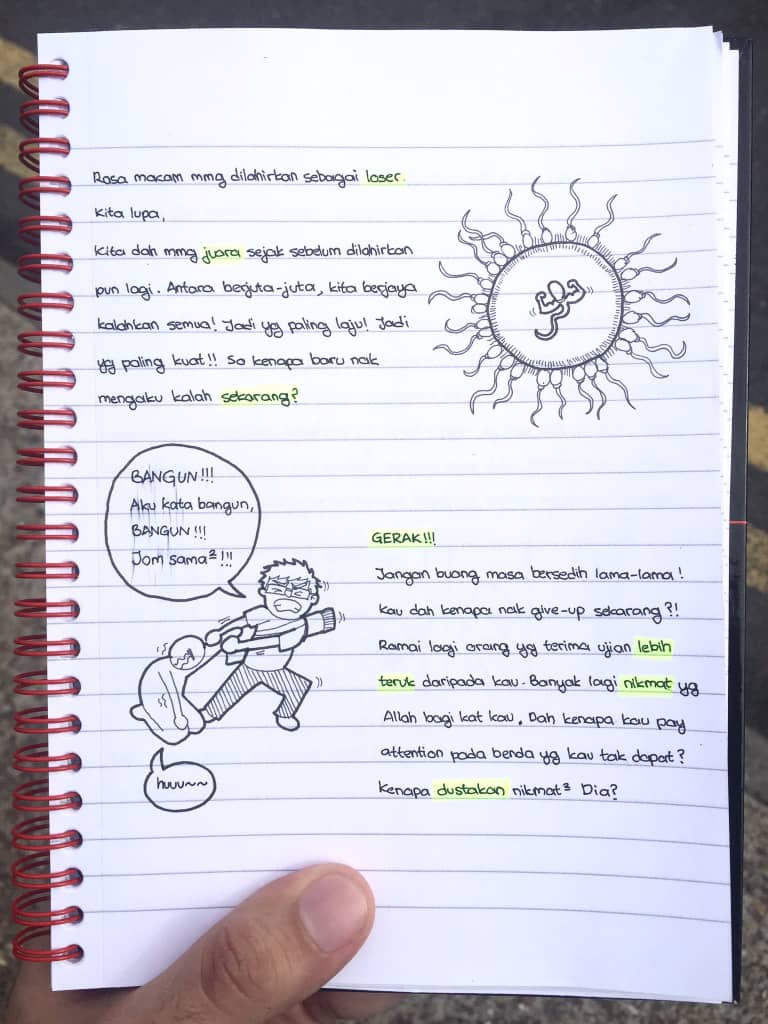 Rasa macam mmg dilahirkan sebagai loser.
Kita lupa,
Kita dah mmg juara sejak sebelum dilahirkan
pun lagi. Antara berjuta-juta, kita berjaya
kalahkan semua! Jadi yg paling laju! Jadi
yg paling kuat!! So kenapa baru nak
mengaku kalah sekarang?
BANGUN!!!
Aku kata bangun,
BANGUN!!!
Jom sama²!!!
huuu~~
GERAK!!!
Jangan buang masa bersedih lama-lama!
Kau dah kenapa nak give-up sekarang?!
Ramai lagi orang yg terima ujian lebih
teruk daripada kau. Banyak lagi nikmat yg
Allah bagi kat kau. Dah kenapa kau pay
attention pada benda yg kau tak dapat?
Kenapa dustakan nikmat² Dia?